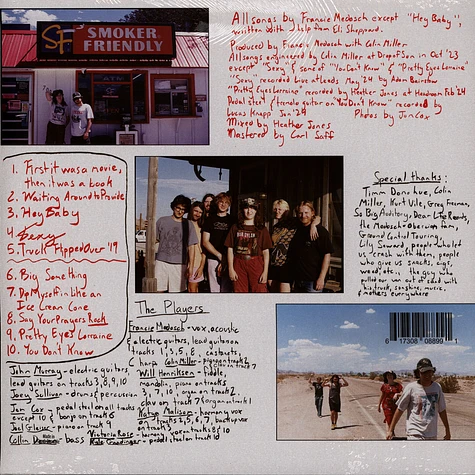 SF SMOKER FRIENDLY
All songs by Francie Medosch except "Hey Baby",
written with help from Eli Sheppard.
Produced by Francie Medosch with Colin Miller
All songs engineered by Colin Miller at Drop of Sun in Oct '23
Except "Sexy" & some of "You Don't Know" & "Pretty Eyes Lorraine"
"Sexy" recorded live at Leads May '24 by Adam
"Pretty Eyes Lorraine" recorded by Heather Jones at Feb '24
Pedal steel & tremolo guitar on "You Don't Know" recorded by
Lucas Knapp Jun '24 Photos by Jon Cox
Mixed by Heather Jones
Mastered by Carl Saff
1. First it was a movie,
then it was a book
2. Waiting Around to Provide
3. Hey Baby
4. Sexy
5. Truck Flipped Over '19
6. Big Something
7. Do Myself in like an
Ice Cream Cone
8. Say Your Prayers Rock
9. Pretty Eyes Lorraine
10. You Don't Know
Special thanks:
Tim Donohue, Colin
Miller, Kurt Vile, Greg Freeman,
So Big Auditory, Dear Life Records,
the Medosch + Oberwim fam,
Ground Control Touring,
Lily Seward, people who let
us crash with them, people
who give us snacks, cigs,
weed, etc., the guy who
pulled our van out of sand with
his truck, sunshine, music,
& mothers everywhere
The Players
Francie Medosch - vox, acoustic
& electric guitars, lead guitar on
tracks 1, 3, 5, 8, castanets,
harp
Colin Miller - piano on track 2
Will Henriksen - fiddle
mandolin, piano on tracks
3, 7, 10, organ on track 2,
Katya Malison - harmony vox
on tracks 1, 5, 6, 7, backup vox
on track 3
John Murray - electric guitars,
lead guitars on tracks 3, 8, 9, 10
Joey Sullivan - drums & percussion
Jon Cox - pedal steel on all tracks
except 10 & banjo on track 6
Joel Gleiser - piano on track 9
Collin - bass
Victoria Rose - harmony vox on tracks 8 & 10
Kale - pedal steel on track 10
6 17308 08899 1